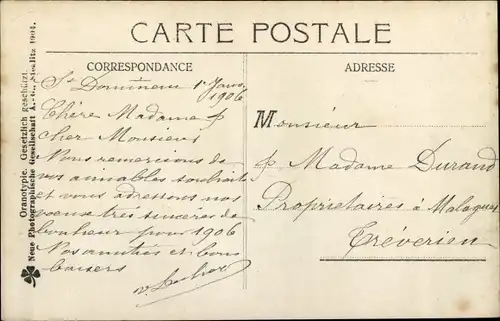 CARTE POSTALE
CORRESPONDANCE
St Domineuc 1er Janv
1906
Chère Madame &
cher Monsieur
Nous remercions de
vos aimables souhaits
et vous adressons nos
voeux très sincères de
bonheur pour 1906
Nos amitiés et bons
baisers
ADRESSE
Monsieur
& Madame Durand
Propriétaires à
Tréverien
Oranotypie. Gesetzlich geschützt.
Neue Photographische Gesellschaft A.-G., Steglitz 1904.